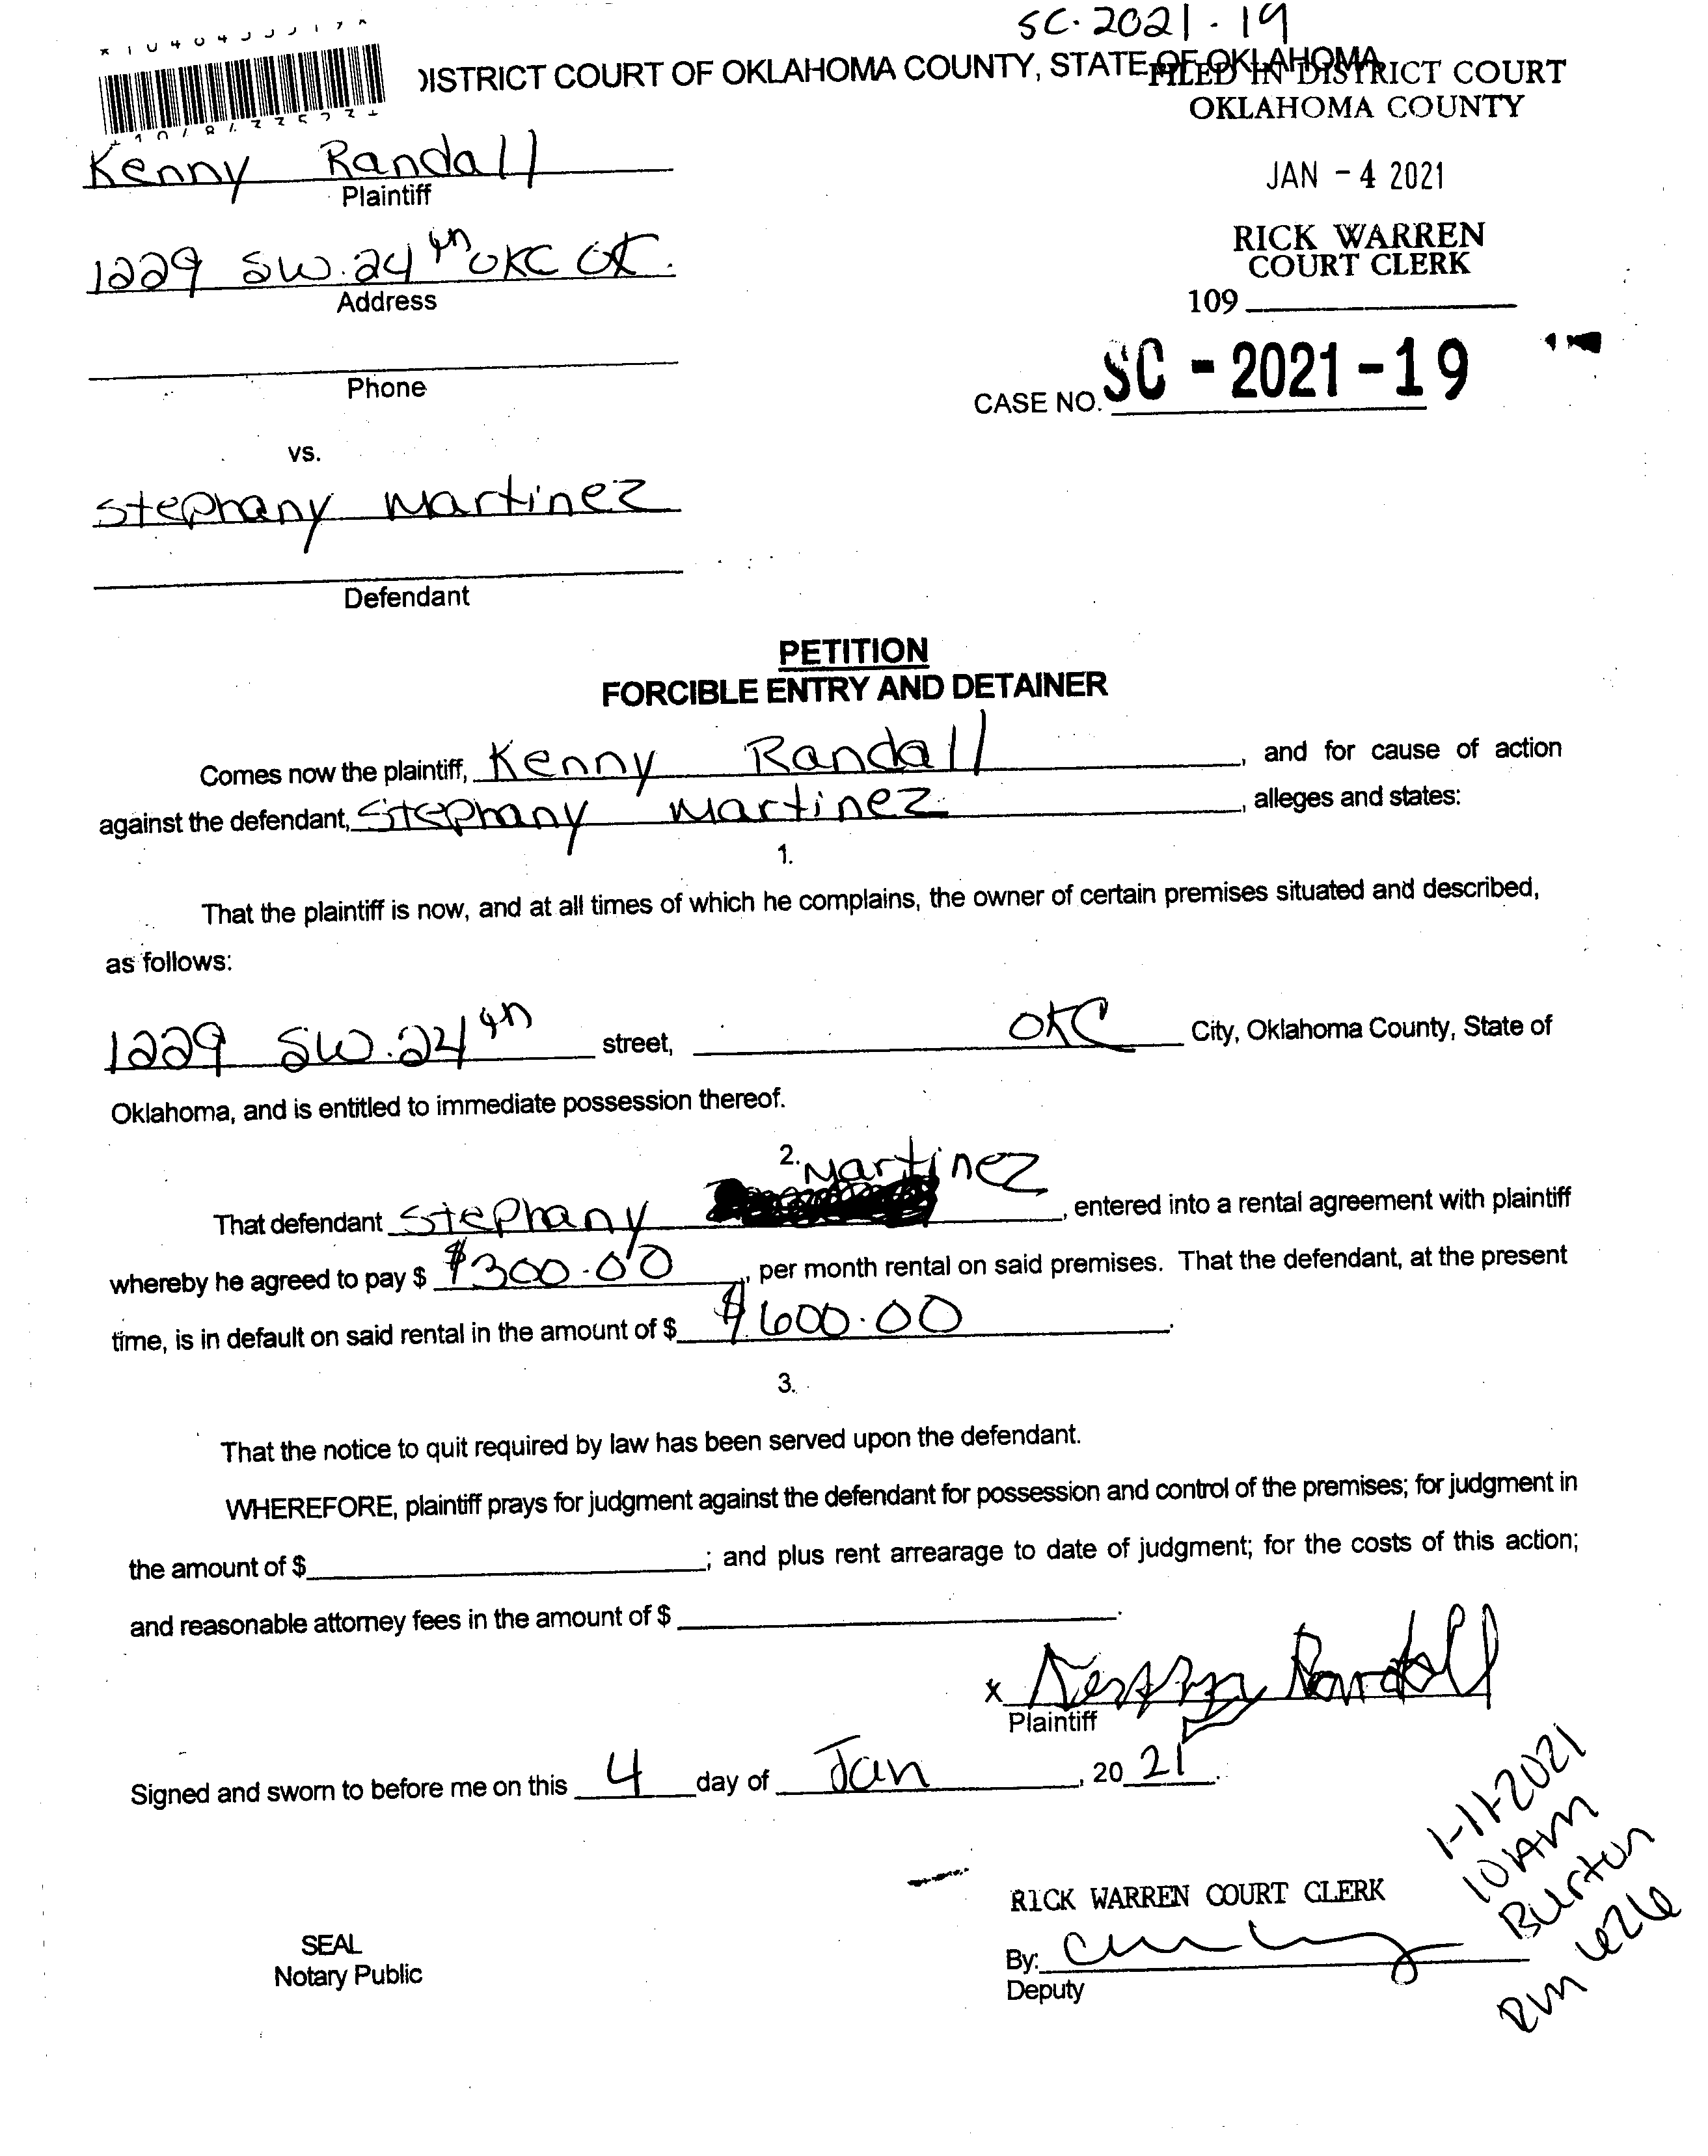 SC-2021-19
DISTRICT COURT OF OKLAHOMA COUNTY, STATE OF OKLAHOMA
FILED IN DISTRICT COURT
OKLAHOMA COUNTY
JAN - 4 2021
RICK WARREN
COURT CLERK
109
CASE NO. SC - 2021 - 19
Kenny Randall
Plaintiff
1229 SW. 24th OKC OK.
Address
Phone
vs.
Stephany Martinez
Defendant
PETITION
FORCIBLE ENTRY AND DETAINER
Comes now the plaintiff, Kenny Randall, and for cause of action
against the defendant, Stephany Martinez, alleges and states:
1.
That the plaintiff is now, and at all times of which he complains, the owner of certain premises situated and described,
as follows:
1229 SW. 24th street, OKC City, Oklahoma County, State of
Oklahoma, and is entitled to immediate possession thereof.
2.
That defendant Stephany Martinez, entered into a rental agreement with plaintiff
whereby he agreed to pay $ $300.00, per month rental on said premises. That the defendant, at the present
time, is in default on said rental in the amount of $ $600.00.
3.
That the notice to quit required by law has been served upon the defendant.
WHEREFORE, plaintiff prays for judgment against the defendant for possession and control of the premises; for judgment in
the amount of $; and plus rent arrearage to date of judgment; for the costs of this action;
and reasonable attorney fees in the amount of $.
x Kenny Randall
Plaintiff
Signed and sworn to before me on this 4 day of Jan, 2021.
1-11-2021
10AM
Burton
Rm
RICK WARREN COURT CLERK
By:
Deputy
SEAL
Notary Public